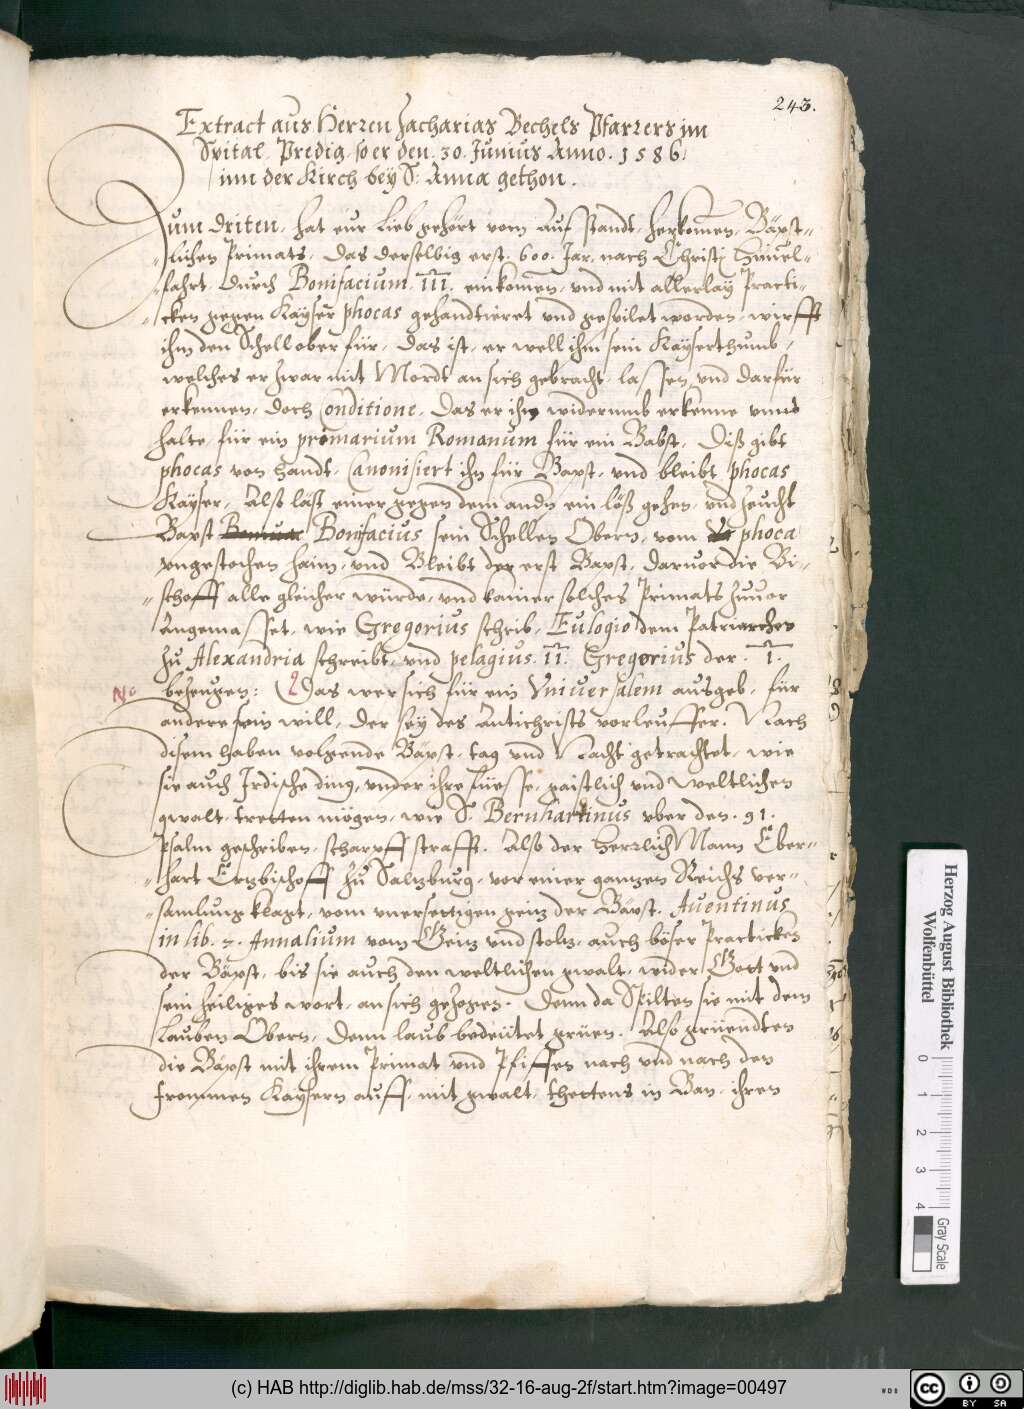 243.
Extract aus Herren Zacharias Bechels Pfarrers im
Spital, Predig, so er den. 30. Junius Anno. 1586.
inn der Kirch bey S: Anna gethon.
Zum driten, hat eur Lieb gehört vom Auffstandt, herkomen, Bäpst-
lichen Primats, das derselbig erst. 600. Jar, nach Christi Himel-
fahrt, durch Bonifacium. III. einkomen, vnd mit allerlay Practi-
cken gegen Kayser phocas gehandtieret vnd gespilet worden, wirfft
ihm den Schellober für, das ist, er well ihm sein Kayserthumb,
welches er zwar mit Mordt an sich gebracht, lassen, vnd darfür
erkennen, doch Conditione, das er ihn widerumb erkenne vnnd
halte, für ein promarium Romanum für ein Babst, Diß gibt
phocas von handt, Canonisiert ihn für Bapst, vnd bleibt phocas
Kayser, Also läst einer gegen dem andn ein löß gehen, vnd zeucht
Bapst Bonifacius sein Schellen Obern, vom phoca
vngestochen haim, vnd Bleibt der erst Bapst, daruor die Bi-
schoff alle gleicher würde, vnd kainer solches Primats zuuor
Angemasset, wie Gregorius schrib, Eulogio dem Patriarchen
zu Alexandria schreibt, vnd pelagius. II. Gregorius der. I.
No bezeugen: Das wer sich für ein Vniuersalem ausgeb, für
andere sein will, der sey des Antichrists vorleuffer. Nach
disem haben volgende Bäpst, tag vnd Nacht getrachtet, wie
sie auch Irdische ding, vnder ihre füesse, gaistlich vnd weltlichen
gwalt, tretten mögen, wie S. Bernhartinus vber den. 91.
Psalm geschriben, scharpff strafft. Also der herrlich Mann Eber-
hart Ertzbischoff zu Saltzburg, vor einer gantzen Reichs ver-
samlung klagt, vom vnersettigen geitz der Bäpst. Auentinus
in lib. 7. Annalium vom Geitz vnd stoltz, auch böser Practicken
der Bäpst, bis sie auch den weltlichen gwalt, wider Gott vnd
sein heiliges wort, an sich gezogen. Denn da Spilten sie mit dem
Lauben Obern, denn laub bedeütet grüen. Also grüendten
die Bäpst mit ihrem Primat vnd Pfiffen nach vnd nach den
frommen Kaysern auff, mit gwalt, thettens in Ban, ihren
Herzog August Bibliothek
Wolfenbüttel
0 1 2 3 4
Gray Scale
(c) HAB http://diglib.hab.de/mss/32-16-aug-2f/start.htm?image=00497
WDB
cc BY SA